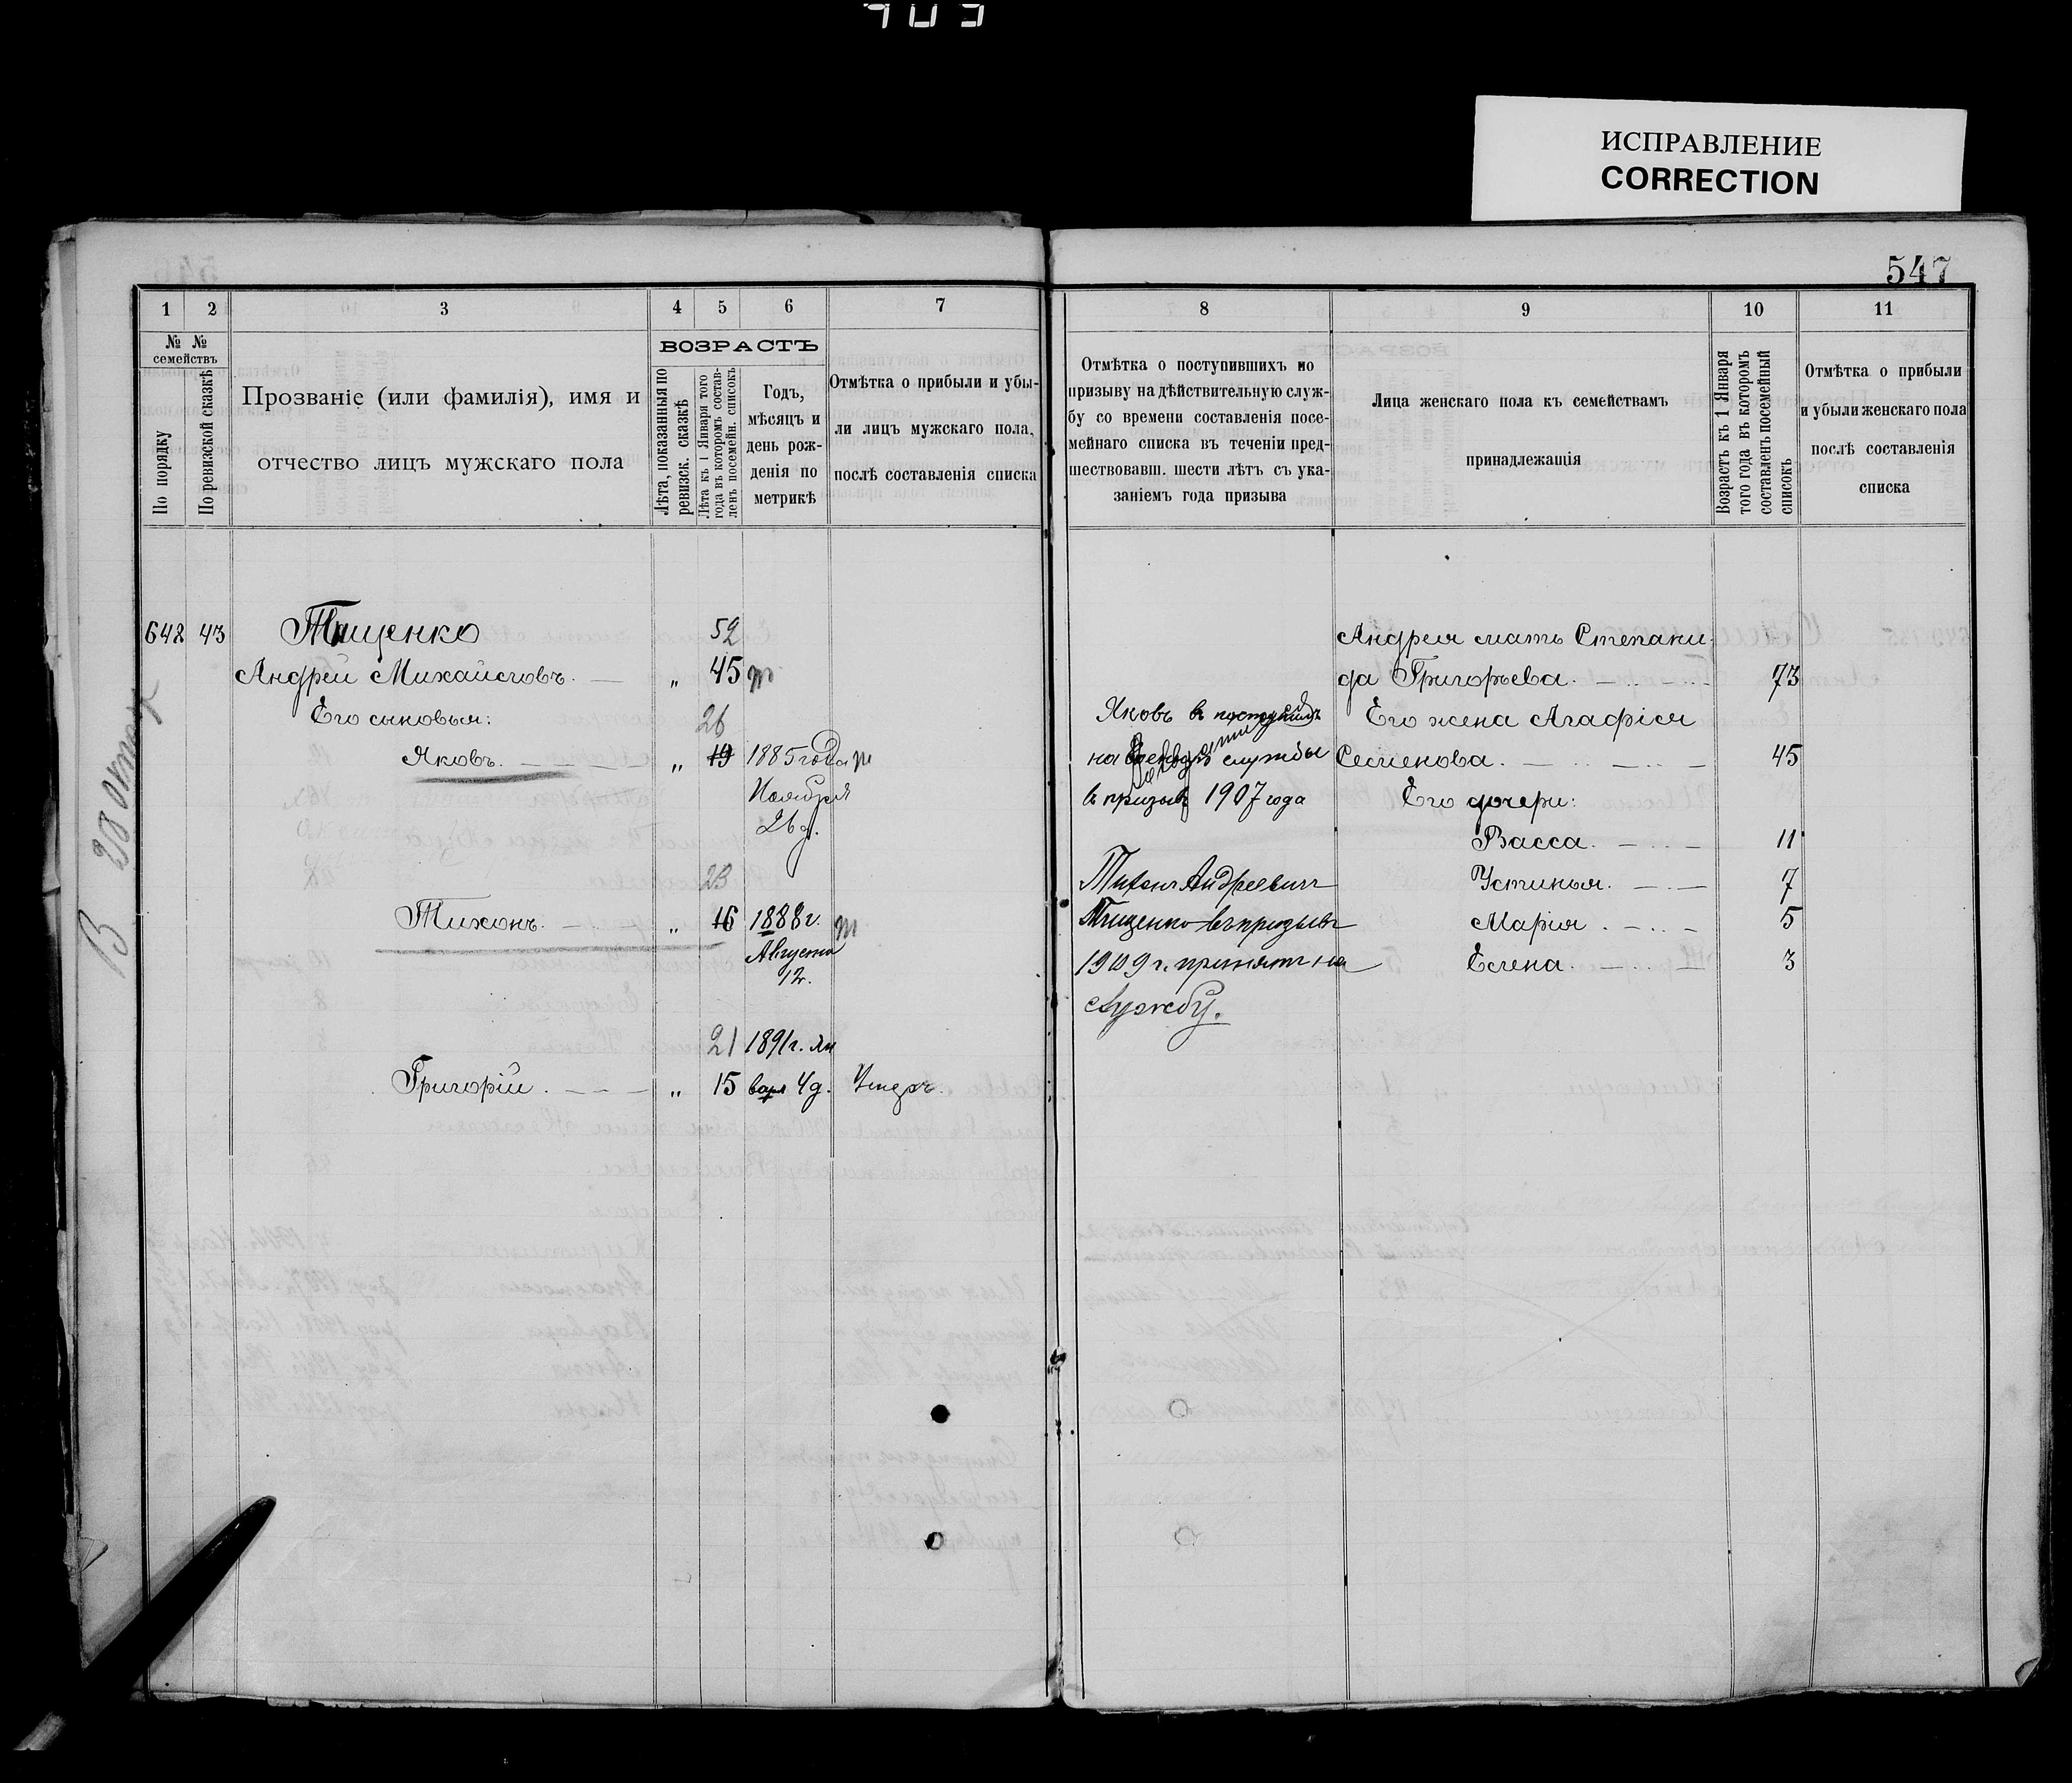 ИСПРАВЛЕНИЕ
CORRECTION
547
1 2 3 4 5 6 7
№ № семействъ
По порядку
По ревизской сказкѣ
Прозваніе (или фамилія), имя и
отчество лицъ мужскаго пола
ВОЗРАСТЪ
Лѣта, показанныя по
ревизск. сказкѣ
Лѣта къ 1 Января того
года въ которомъ состав-
ленъ посемейн. списокъ
Годъ,
мѣсяцъ и
день рож-
денія по
метрикѣ
Отмѣтка о прибыли и убы-
ли лицъ мужскаго пола,
послѣ составленія списка
648 43 Тищенко 52
Андрей Михайловъ. „ 45
Его сыновья: 26
Яковъ. „ 19 1885 года
Ноября
26 д.
23
Тихонъ. „ 16 1888 г.
Августа
12.
21 1891 г. Ян
Григорій. „ 15 варя 4 д. Умеръ.
8 9 10 11
Отмѣтка о поступившихъ по
призыву на дѣйствительную служ-
бу со времени составленія посе-
мейнаго списка въ теченіи пред-
шествовавш. шести лѣтъ съ ука-
заніемъ года призыва
Лица женскаго пола къ семействамъ
принадлежащія
Возрастъ къ 1 Января
того года въ которомъ
составленъ посемейный
списокъ
Отмѣтка о прибыли
и убыли женскаго пола
послѣ составленія
списка
Яковъ
на службы
в призывъ 1907 года
Тихон Андреевич
Тищенко въ призывъ
1909 г. принят на
службу.
Андрея мать Степани
да Григорьева. 73
Его жена Агафія
Семенова. 45
Его дочери:
Васса. 11
Устинья. 7
Марія. 5
Елена. 3